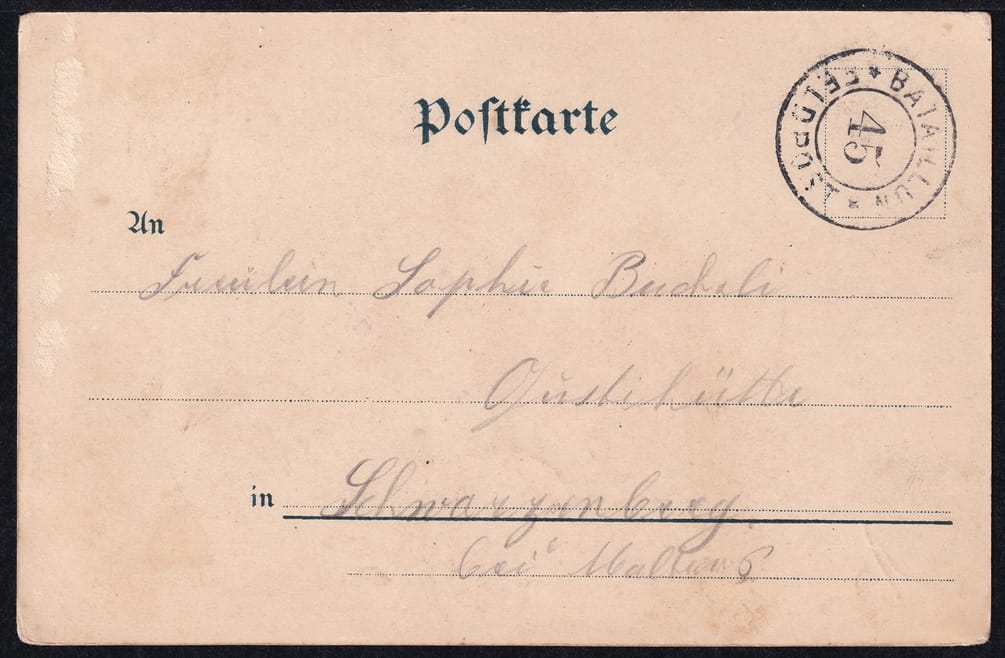 Postkarte
FELDPOST * BATAILLON *
45
An
Fräulein Sophie Bucheli
in Schwarzenberg.
bei Malters